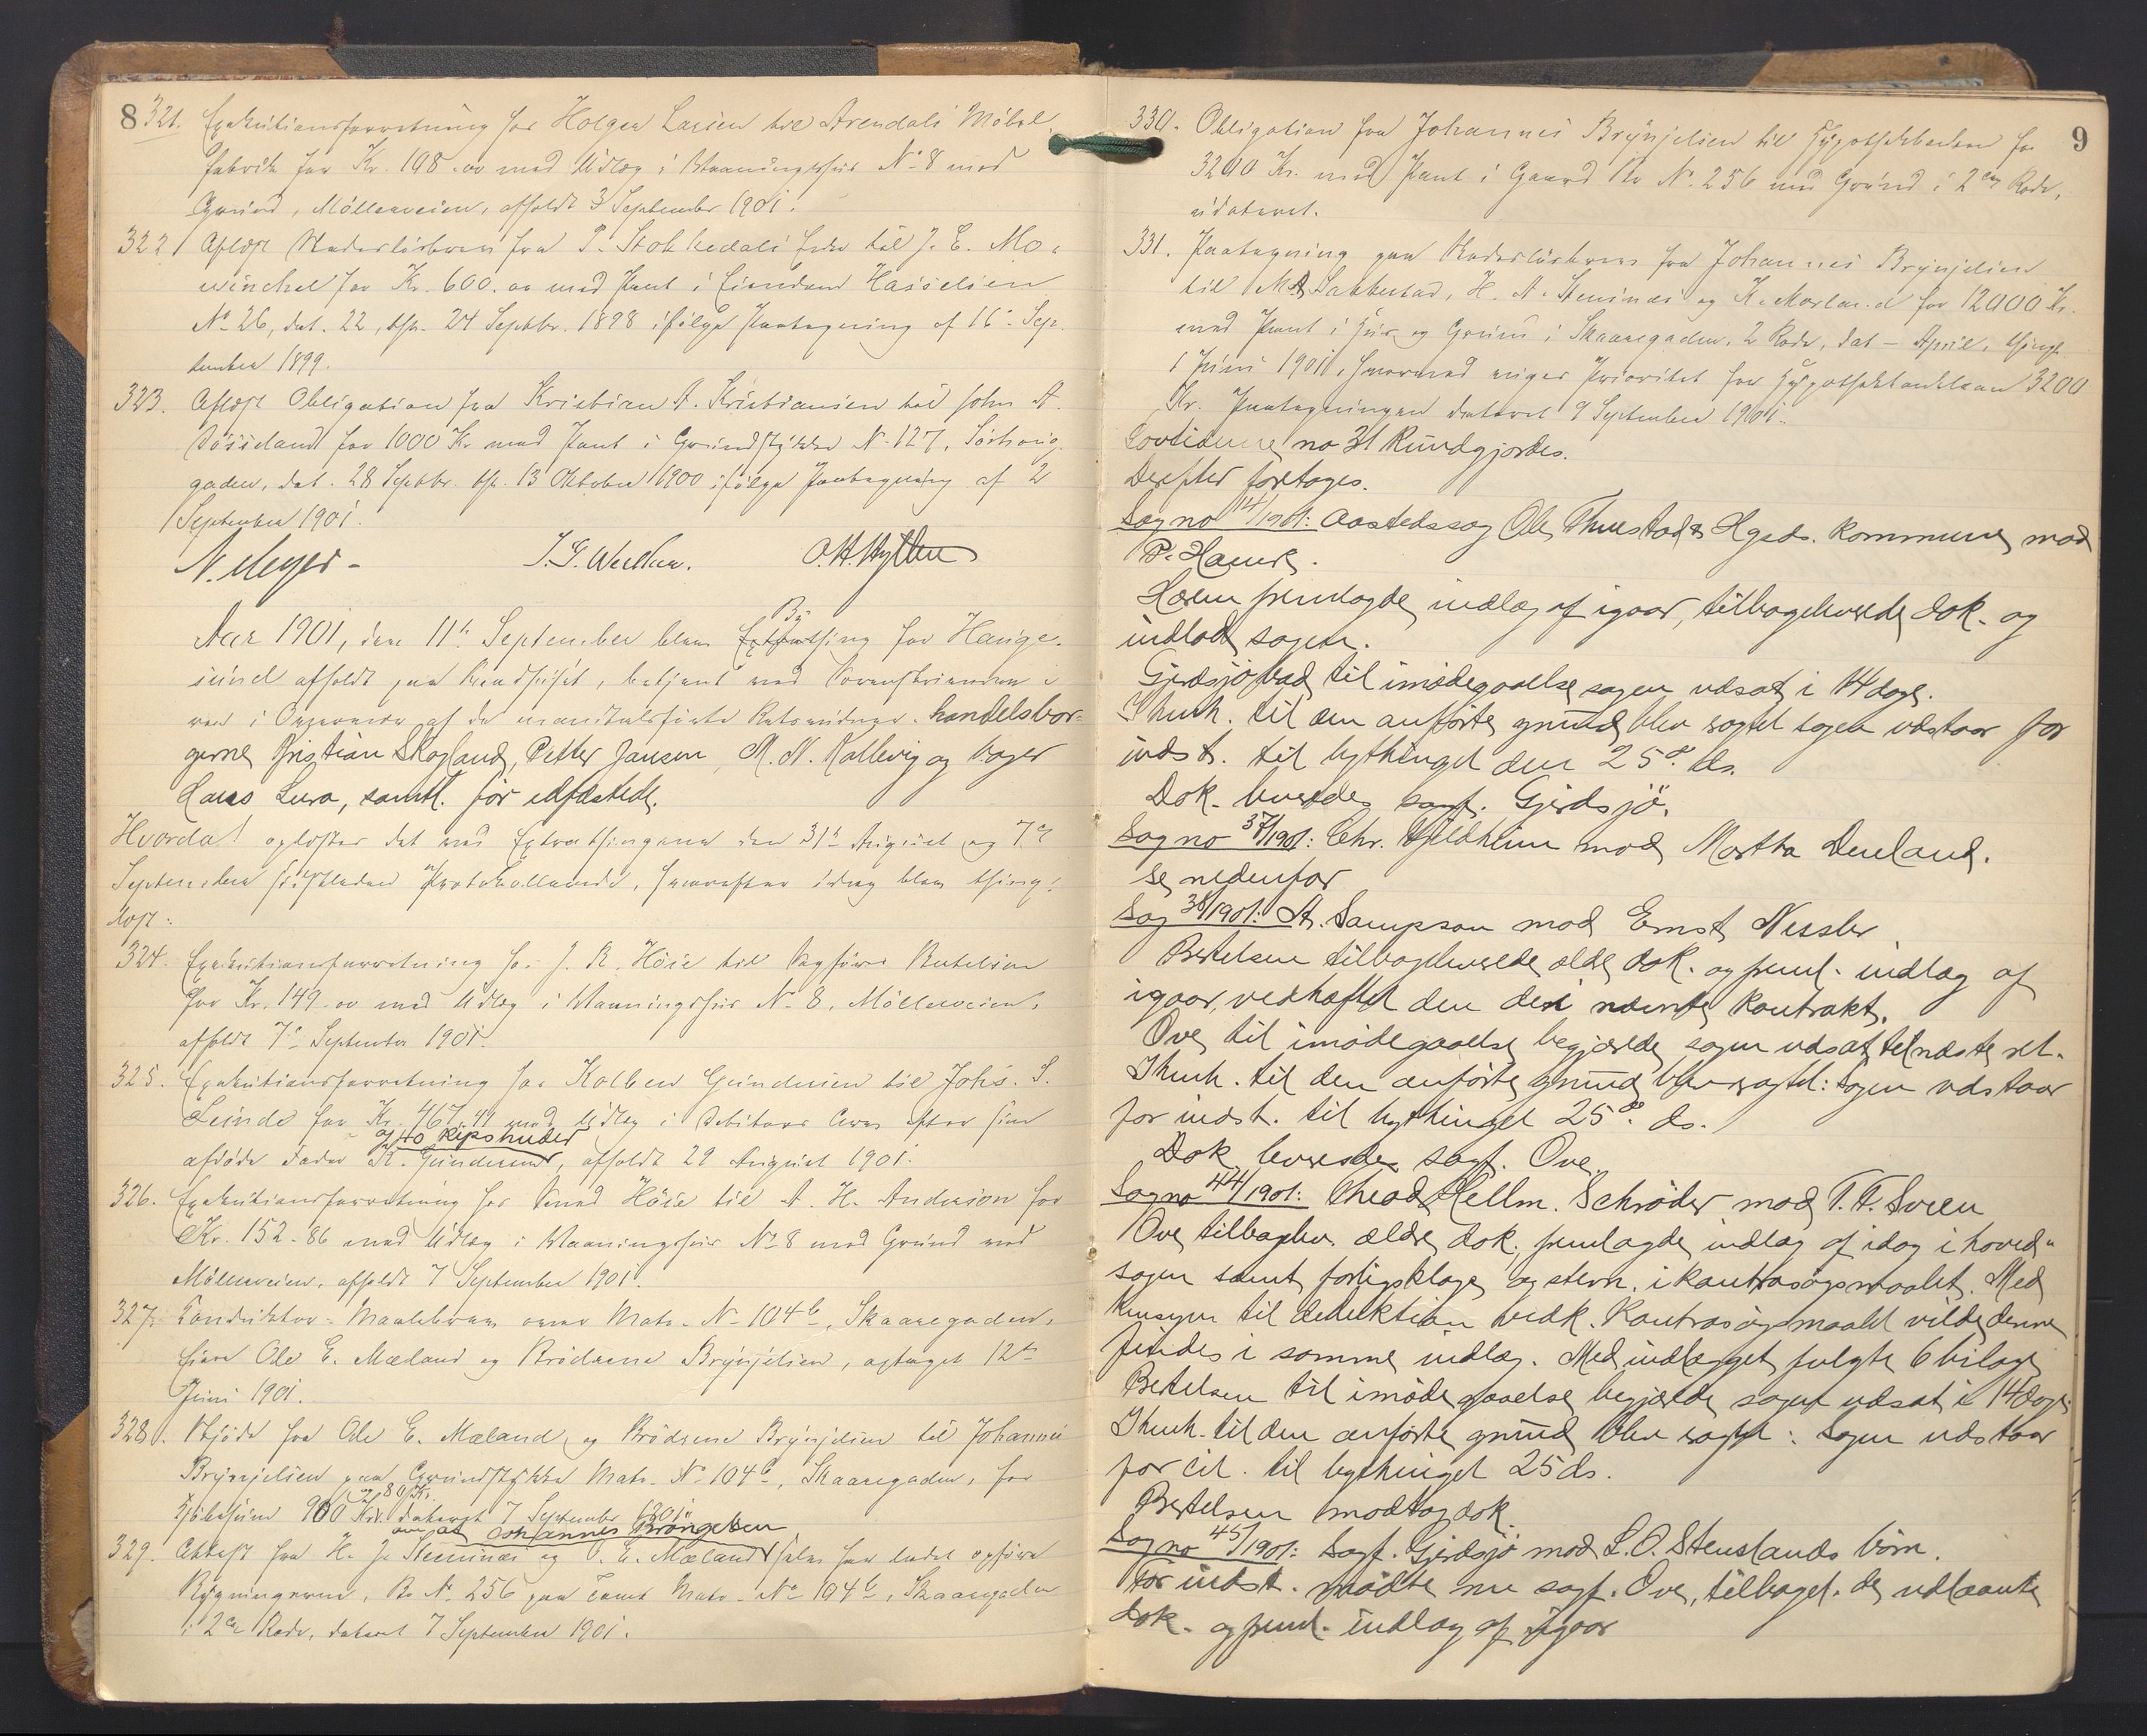 8
321. Exekutionsforretning hos Holger Larsen til Arendals Möbel-
fabrik for Kr. 198.00 med Udlæg i Vaaningshus No 8 med
Grund, Mölleveien, afholdt 3 September 1901.
322 Aflyst Skadeslösbrev fra P. Stokkedals Enke til J. E. Mo-
winckel for Kr. 600.00 med Pant i Eiendom Hasselsien
No 26, dat. 22, thgl. 24 Septbr. 1898 ifölge Paategning af 16de Sep-
tember 1899.
323. Aflyst Obligation fra Kristian A. Kristiansen til John A.
for 1000 Kr med Pant i Grundstykke No 127, Sörhaug-
gaden, dat. 28 Septbr. thgl. 13 Oktober 1900 ifölge Paategning af 2
September 1901.
N. Meyer- O. H. Hytten
Aar 1901, den 11te September blev By Extrathing for Hauge-
sund afholdt paa Raadhuset, betjent ved Sorenskriveren i
Overvær af de mandtalsförte Retsvidner. handelsbor-
gerne Kristian Skogland, Petter Jansen, M. N. Kallevig og bager
Hans Lura, samtl. för edfæstede.
Hvorda! oplæstes det ved Extrathingene den 31te August og 7de
September Protokollerede, hvorefter idag blev thing-
lyst:
324. Exekutionsforretning hos J. R. Höie til Sagförer Bertelsen
for Kr. 149.00 med Udlæg i Vaaningshus No 8, Mölleveien,
afholdt 7de September 1901.
325. Exekutionsforretning hos Kolben Gundersen til Johs. S.
Lunde for Kr. 467.41 med Udlæg i Debitors Arv efter sin
og 40 kipshuder
afdöde Fader K. Gundersen, afholdt 29 August 1901.
326. Exekutionsforretning hos Knud Höie til A. H. Anderson for
Kr. 152-86 med Udlæg i Vaaningshus No 8 med Grund ved
Mölleveien, afholdt 7 September 1901.
327. Konduktör-Maalebrev over Matr. No 104b, Skaaregaden,
Eiere Ole E. Mæland og Brödrene Brynjelsen, optaget 12te
Juni 1901.
328. Skjöde fra Ole E. Mæland og Brödrene Brynjelsen til Johannes
Brynjelsen paa Grundstykke Matr. No 104b, Skaaregaden, for
og 80/Kr.
Kjöbesum 900 Kr. dateret 7 September 1901.
om at Johannes Bröngelsen
329. Attest fra H. J. Steinnes og O. E. Mæland selv har ladet opföre
Bygningerne, Br No 256 paa Tomt Matr. No 104b, Skaaregaden
i 2den Rode, dateret 7 September 1901.
9
330. Obligation fra Johannes Brynjelsen til Hypothekbanken for
3200 Kr. med Pant i Gaard Br No. 256 med Grund i 2den Rode,
udateret.
331. Paategning paa Skadeslösbrev fra Johannes Brynjelsen
til M. A. Sabbestad, H. A. Steinnes og K. Mæland for 12000 Kr.
med Pant i Hus og Grund i Skaaregaden, 2 Rode, dat - April, thingl.
1 Juni 1901, hvorved viges Prioritet for Hypothekbanklaan 3200
Kr. Paategningen dateret 9 September 1901.
no 31 kundgjordes.
Derefter foretoges.
Sag no 14/1901: Aastedssag Ole Thuestad & Hgsds. kommune mod
P. Haure.
Haren fremlagde indlæg af igaar, tilbageleverede dok. og
indlod sagen.
Gjerdsjö bad til imödegaaelse sagen udsat i 14 dage.
Thinh. til den anförte grund blev sagtet sagen udstaar for
indst. til bythinget den 25de ds.
Dok. leveredes sagf. Gjerdsjö.
Sag no 37/1901: Chr. Hjeldheim mod Martha Dueland.
se nedenfor
Sag 38/1901: A. Sampson mod Ernst Nessler
Bertelsen tilbageleverede ældre dok. og freml. indlæg af
igaar, vedhæftet den deri nævnte kontrakt.
Ove til imödegaaelse begjærede sagen udsat til næste ret.
Thinh. til den anförte grund blev sagtet: Sagen udstaar
for indst. til bythinget 25de ds.
Dok leveredes sagf. Ove.
Sag no 44/1901: Theod. Hellm. Schröder mod T. F. Sveen
Ove tilbaglev. ældre dok., fremlagde indlæg af idag i hoved-
sagen samt forligsklage og stevn. i kontrasögsmaalet. Med
hensyn til deduktion vedk. kontrasögsmaalet vilde denne
findes i samme indlæg. Med indlægget fulgte 6 bilage
Bertelsen til imödegaaelse begjærede sagen udsat i 14 dage.
Thinh. til den anförte grund blev sagtet: Sagen udstaar
for cit. til bythinget 25 ds.
Bertelsen modtog dok.
Sag no 45/1901: Sagf. Gjerdsjö mod L. O. Stenslands börn.
For indst. mödte nu sagf. Ove, tilbagel. de udlaante
dok. og freml. indlæg af igaar